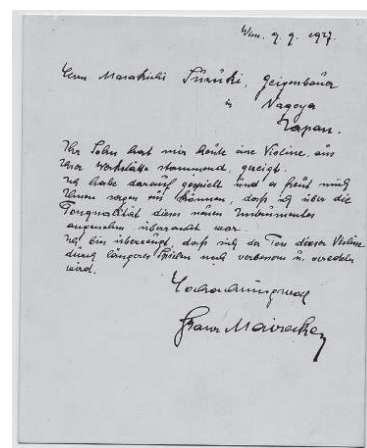 Wien, 9. 9. 1927.
Herrn Masakichi Suzuki, Geigenbauer
in Nagoya
Japan.
Ihr Sohn hat mir heute eine Violine, aus
Ihrer Werkstätte stammend, gezeigt.
Ich habe darauf gespielt und es freut mich
Ihnen sagen zu können, daß ich über die
Tonqualität dieses neuen Instrumentes
angenehm überrascht war.
Ich bin überzeugt, daß sich der Ton dieser Violine
durch längeres Spielen noch verbessern u. veredeln
wird.
Hochachtungsvoll
Franz Mairecker